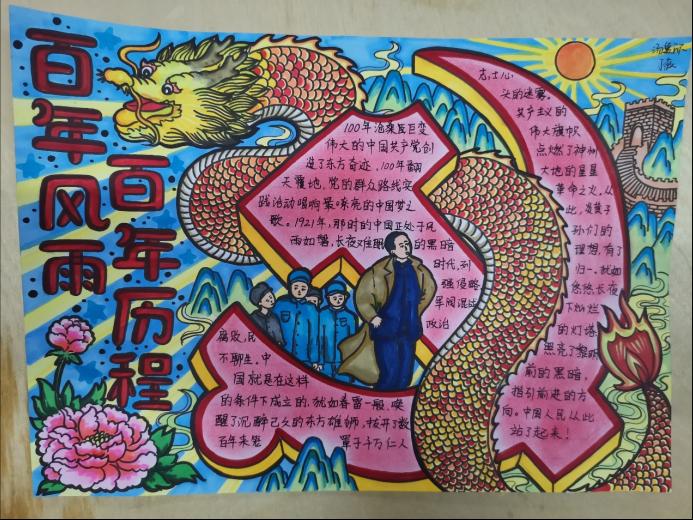 百年风雨
百年历程
100年沧桑巨变
伟大的中国共产党创
造了东方奇迹，100年翻
天覆地，党的群众路线实
践活动唱响最嘹亮的中国梦之
歌。1921年，那时的中国正处于风
雨如磐，长夜难眠的黑暗
时代，列
强侵略
军阀混战
政治
腐败，民
不聊生，中
国就是在这样
的条件下成立的，犹如春雷一般，唤
醒了沉醉已久的东方雄狮，拔开了数
百年来笼罩于千万仁人
志士心
头的迷雾。
共产主义的
伟大旗帜
点燃了神州
大地的星星
革命之火，从
此，炎黄子
孙们的
理想，有了
归一，犹如
悠悠长夜
下灿烂
的灯塔
照亮了黎明
前的黑暗，
指引前进的方
向，中国人民从此
站了起来！